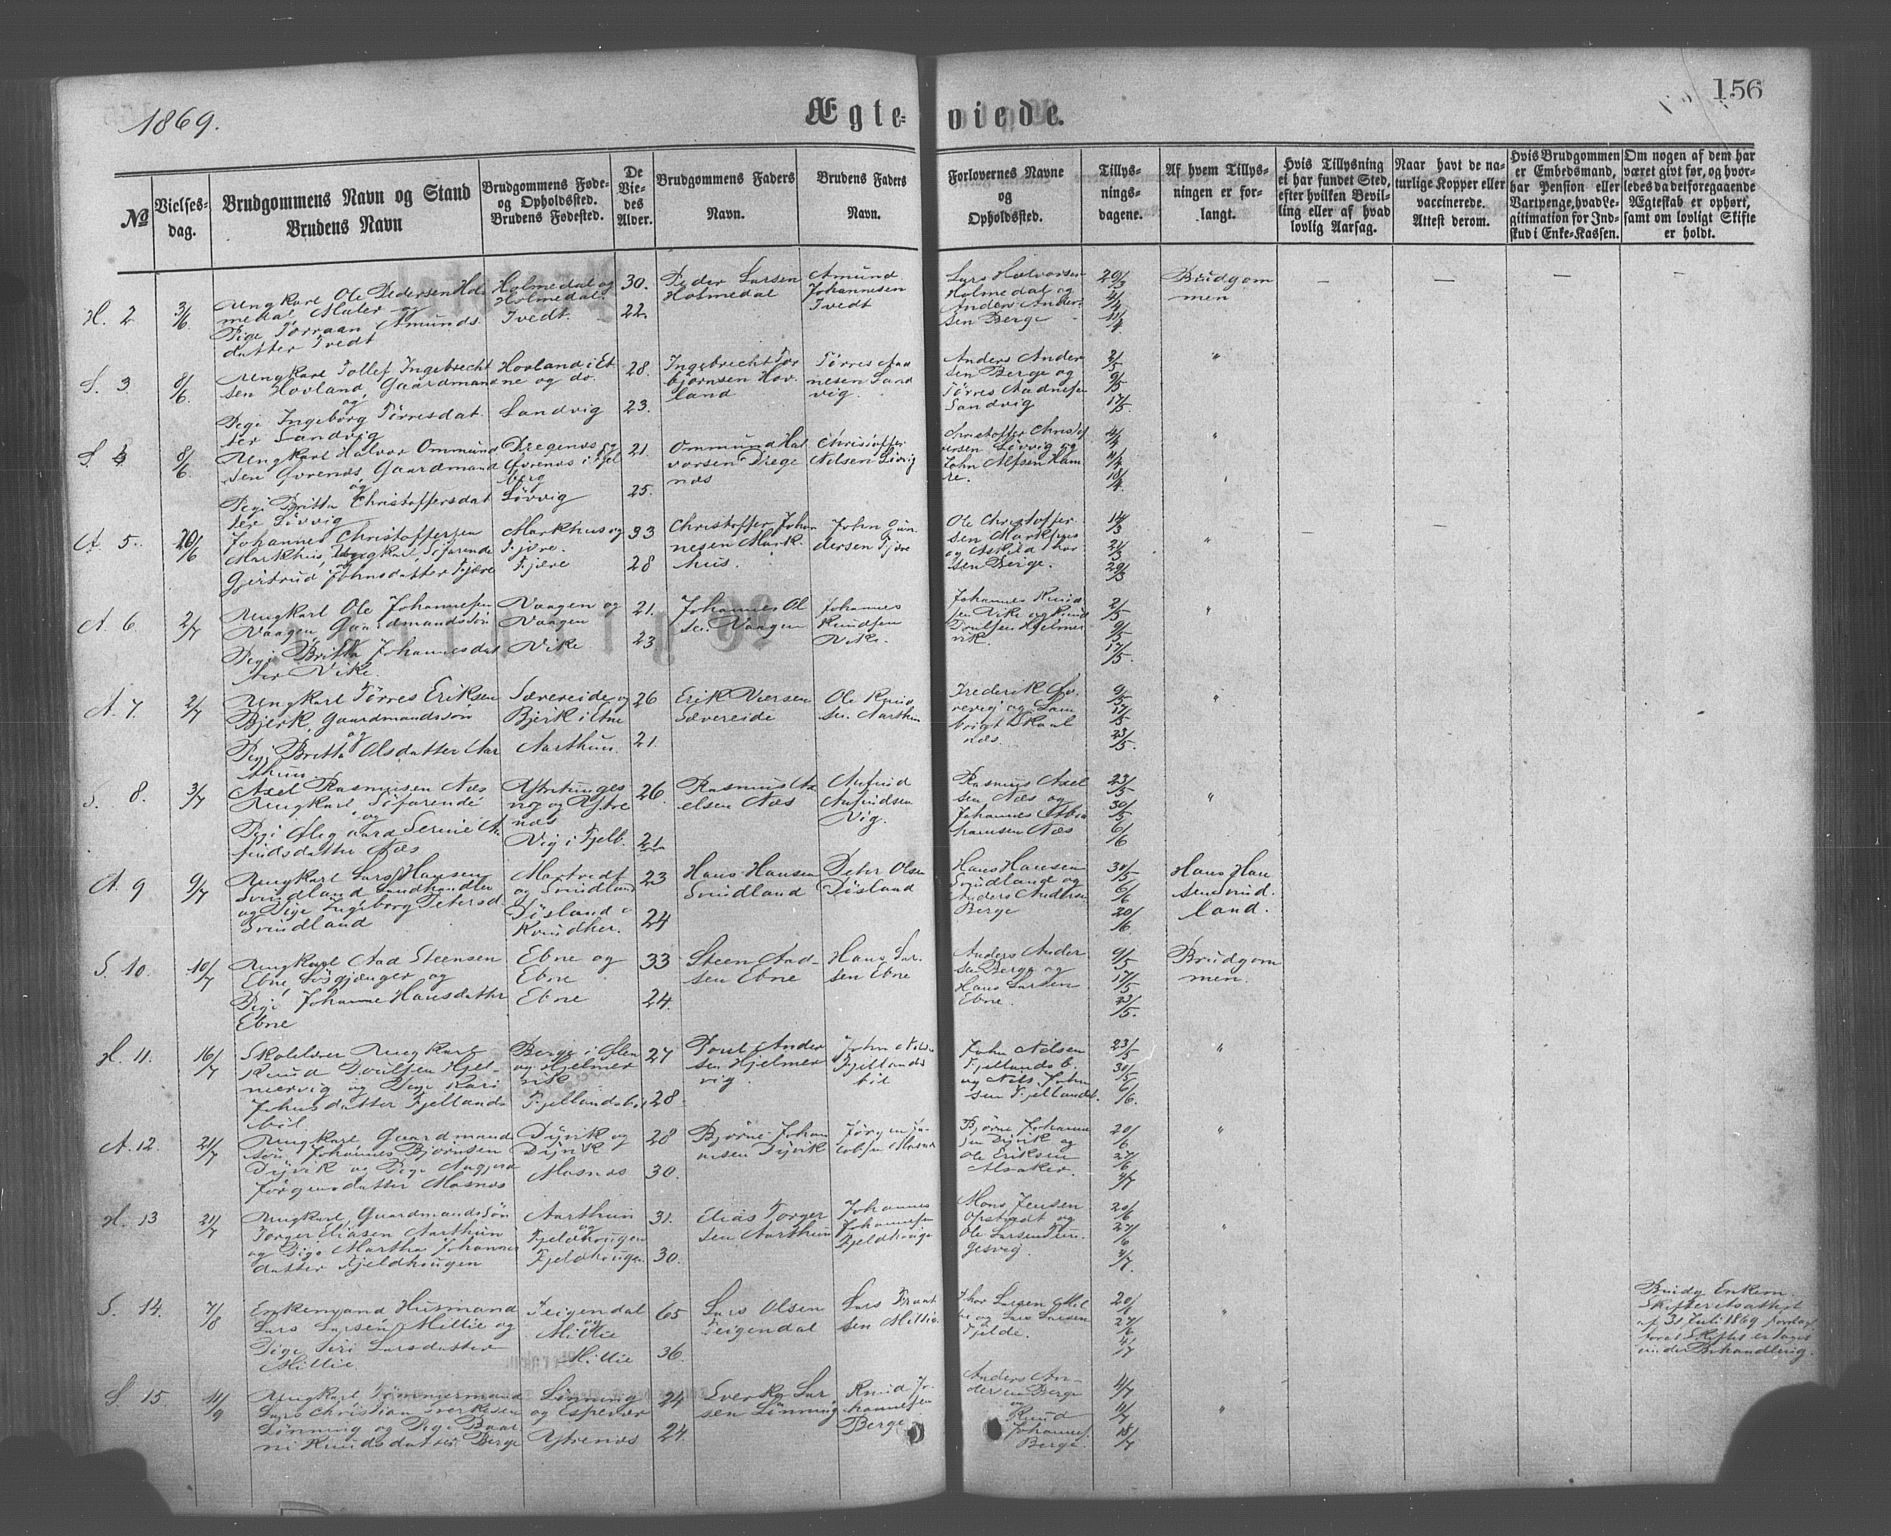 1869.
Ægte-
viede.
156
№
Vielses-
dag.
Brudgommens Navn og Stand
Brudens Navn
BrudgommensFøde-
og Opholdssted.
Brudens Fødested.
De
Vie-
des
Alder.
Brudgommens Faders
Navn.
Brudens Faders
Navn.
Forlovernes Navne
og
Opholdssted.
Tillys-
nings-
dagene.
Af hvem Tillys-
ningen er for-
langt.
Hvis Tillysning
ei har fundet Sted,
efter hvilken Bevil-
ling eller af hvad
lovlig Aarsag.
Naar havt de na-
turlige Kopper eller
vaccinerede.
Attest derom.
Hvis Brudgommen
er Embedsmand,
har Pension eller
Vartpenge, hvad Le-
gitimation for Ind-
skud i Enke-Kassen.
Om nogen af dem har
været givt før, og hvor-
ledes da det foregaaende
Ægteskab er ophørt,
samt om lovligt Skifte
er holdt.
H. 2
3/6
Ungkarl Ole Pedersen Hol-
medal Maler og
Pige Torraan Amunds
datter Tvedt
Holmedal og
Holmedal.
Tvedt.
30.
22.
Peder Larsen
Holmedal
Amund
Johannesen
Tvedt
Lars Halvorsen
Holmedal og
Anders Ander-
sen Berge
29/3
4/4
11/4
Brudgom
men
S. 3
8/6
Ungkarl Tollef Ingebrecht
sen Hovland, Gaardmand
og
Pige Ingeborg Tørresdat
ter Sandvig
Hovland i Et
ne og do.
Sandvig
28.
23.
Ingebrecht Tor
bjørnsen Hov-
land
Tørres Aad
nesen Sand
vig.
Anders Ander
sen Berge og
Tørres Aadnesen
Sandvig
2/5
9/5
17/5
"
S. 4
8/6
Ungkarl Halvor Ommund
sen Øvrenæs Gaardmand
og
Pige Britta Christoffersdat
ter Løvvig
Dregenæs og
Øvrenæs i Fjel
berg
Løvvig
21.
25.
Ommund Hal
vorsen Drege
næs
Christoffer
Nilsen Løvvig
Christoffer Christof
fersen Løvvig og
John Alfsen Ham
re.
4/4
11/4
18/4
"
A. 5.
20/6
Johannes Christoffersen
Markhus, Ungkarl, Søfarende
og
Gjertrud Johnsdatter Fjære
Markhus og
Fjære.
Fjære
33
28
Christoffer Johan
nesen Mark-
hus.
John Gun
dersen Fjære
Ole Christoffer-
sen Markhus
og Askild Thor
sen Berge.
14/3
21/3
29/3
"
A. 6.
2/7
Ungkarl Ole Johannesen
Vaagen, Gaardmandssøn
og
Pige Britta Johannesdat
ter Vike.
Vaagen og
Vaagen
Vike
21.
23
Johannes Ol
sen Vaagen
Johannes
Knudsen
Vike.
Johannes Knud
sen Vike og Knud
Poulsen Hjelmer
vik.
2/5
9/5
17/5.
"
A. 7.
2/7
Ungkarl Tørres Eriksen
Bjerk, Gaardmandssøn
og
Pige Britta Olsdatter Aar
thun
Sævereide og
Bjerk i Etne
Aarthun.
26
21.
Erik Viersen
Sævereide
Ole Knud
sen Aarthun
9/5
17/5
23/5.
"
S. 8.
3/7
Axel Rasmusen Næs
Ungkarl Søfarende
og
Ølegaard Serine
finds datter Næs
Vig i Fjelb.
26.
21
Rasmus Ax
elsen Næs
Vig.
Rasmus Axel
sen Næs og
Johannes Abra
hamsen Næs
23/5
30/5
6/6
"
A. 9
9/7
Ungkarl Lars Hansen
Svindland Landhandler
og Pige Ingeborg Petersd
Svindland
og Svindland
Tøsland i
Kvindher.
23
24
Hans Hansen
Svindland
Peter Olsen
Tøsland
Hans Hansen
Svindland og
Anders Andersen
Berge
30/5
6/6
20/6
Hans Han
sen Svind
land.
S. 10.
10/7
Ungkarl Aad Steensen
Ebne Løsgjænger og
Pige Johanne Hansdatter
Ebne
Ebne og
Ebne
Ebne
33
24.
Steen Aad-
sen Ebne
Hans Lar-
sen Ebne
Anders Ander
sen Berge og
Hans Larsen
Ebne.
9/5
17/5
23/5.
Brudgom
men.
H. 11.
16/7
Skolelærer Ungkarl
Knud Poulsen Hjel-
mervig og Pige Kari
Johnsdatter Fjellands
bøl
Berge i Ølen
og Hjelmer
vik
Fjellandsbøl
27
28
Poul Ander
sen Hjelmer
vig.
John Nils.
Fjellands
bøl
John Nilsen
Fjellands b.
og Nils John
sen Fjellands.
23/5
30/5
6/6.
"
A. 12.
21/7
Ungkarl Gaardmands
søn Johannes Bjørnsen
Dyvik og Pige
Jørgensdatter Mosnæs
Dyvik og
Dyvik
Mosnæs
28
30.
Bjørne Johan
nisen Dyvik
Jørgen Ja-
cobsen Mosnæs
Bjørne Johann
sen Dyvik og
Ole Eriksen
Alsaker.
20/6
27/6
4/7
"
H. 13
21/7
Ungkarl, Gaardmandssøn
Torger Eliasen Aarthun
og Pige Martha Johannes
datter Fjeldhougen
Aarthun
og
Fjeldhougen
Fjeldhougen
31.
30.
Elias Torger
sen Aarthun
Johannes
Johannesen
Fjeldhouge
Mons Jensen
Opstvedt og
Ole Larsen
20/6
27/6
4/7.
"
S. 14.
7/8
Enkemand Husmand
Lars Larsen Millie og
Pige Siri Larsdatter
Millie.
Teigendal
og
Millie
Millie
65
36.
Lars Olsen
Teigendal
Lars Braat
sen Millie
Thor Larsen Mil-
lie og Lars Larsen
Fjelde.
20/6
27/6
4/7
"
Brudg. Enkem.
Skifteretsattest
af 31 Juli 1869
under Behandling.
S. 15.
11/9
Ungkarl Tømmermand
Lars Christian Sverkesen
Lønning og Pige Baar
ni Knudsdatter Berge
Lønning
og Espevær
Ytrenæs
24
24.
Sverke Lar
sen Lønning
Knud Jo-
hannesen
Berge
Anders An-
dersen Berge
og
Knud
Johannes.
Berge.
4/7
11/7
18/7
"